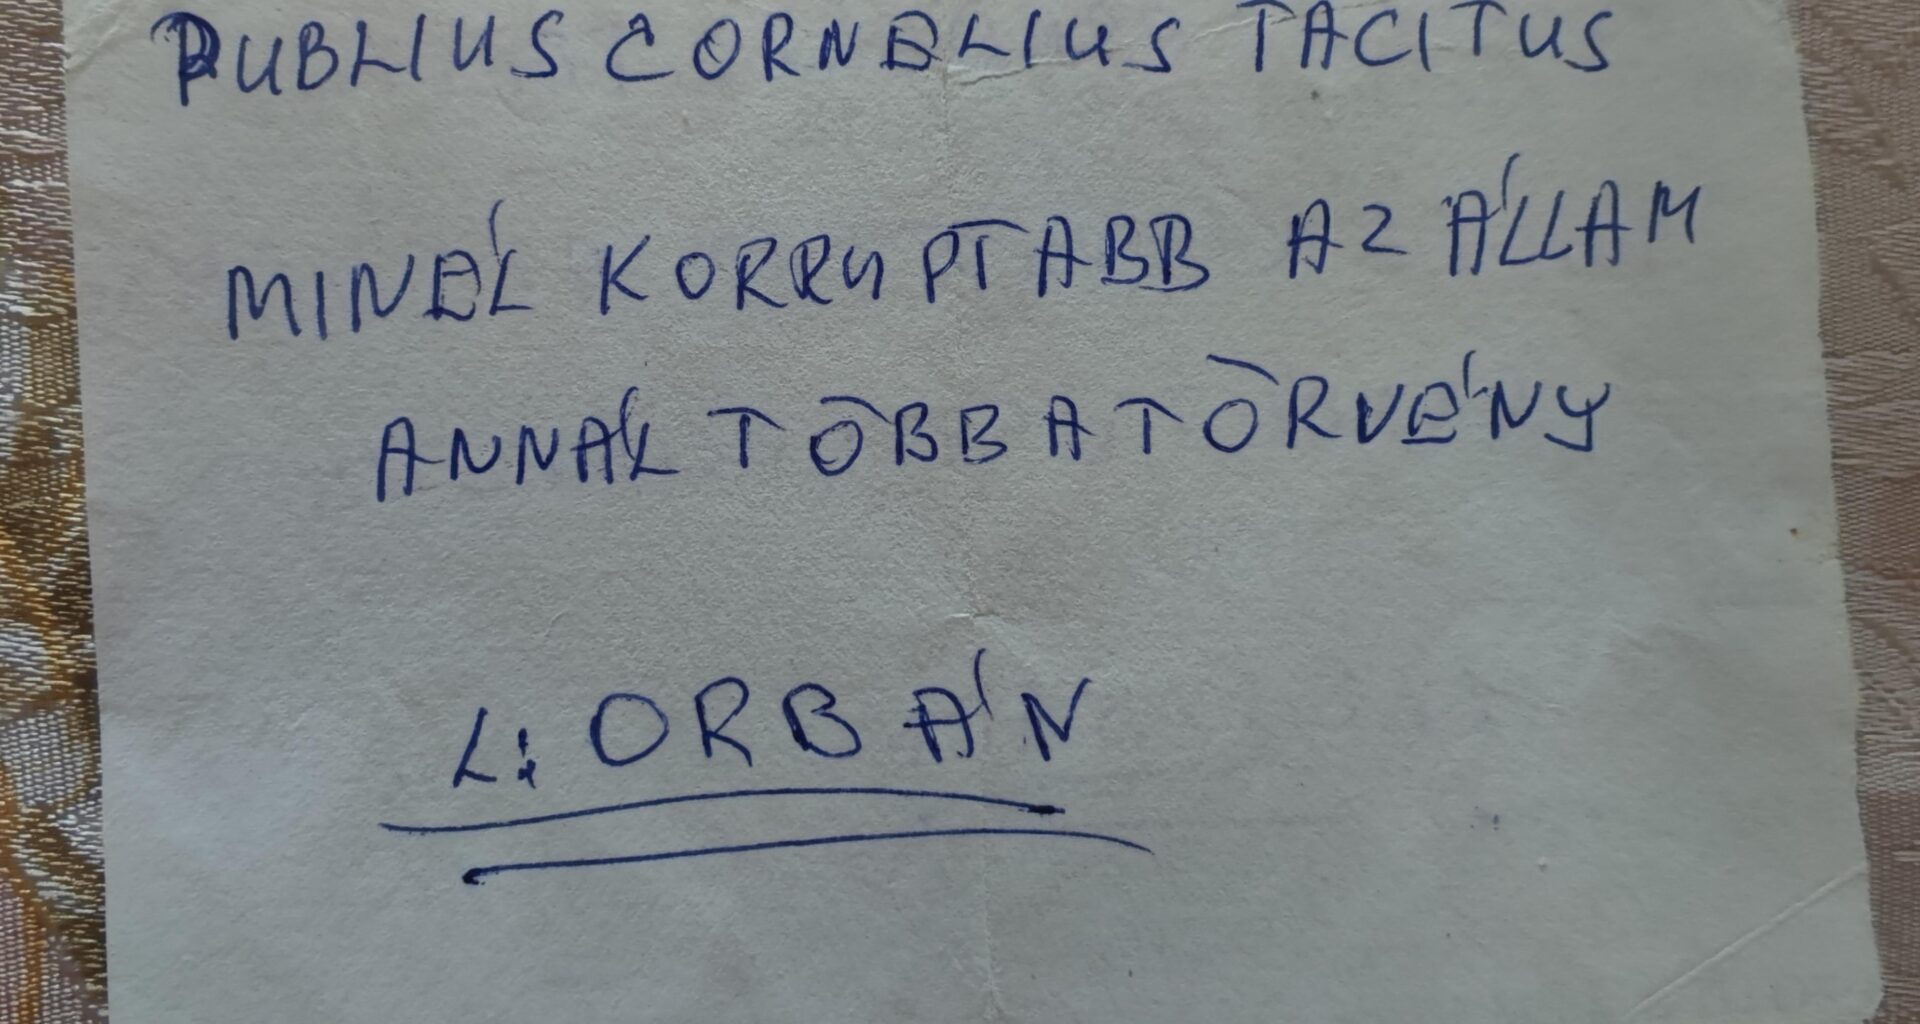 PUBLIUS CORNELIUS TACITUS
MINÉL KORRUPTABB AZ ÁLLAM
ANNÁL TÖBB A TÖRVÉNY
L: ORBÁN